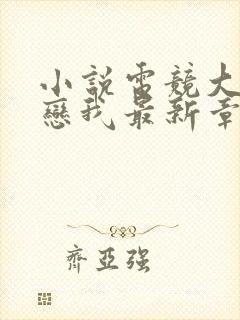 小説電競大
戀我最新章
齊亞強